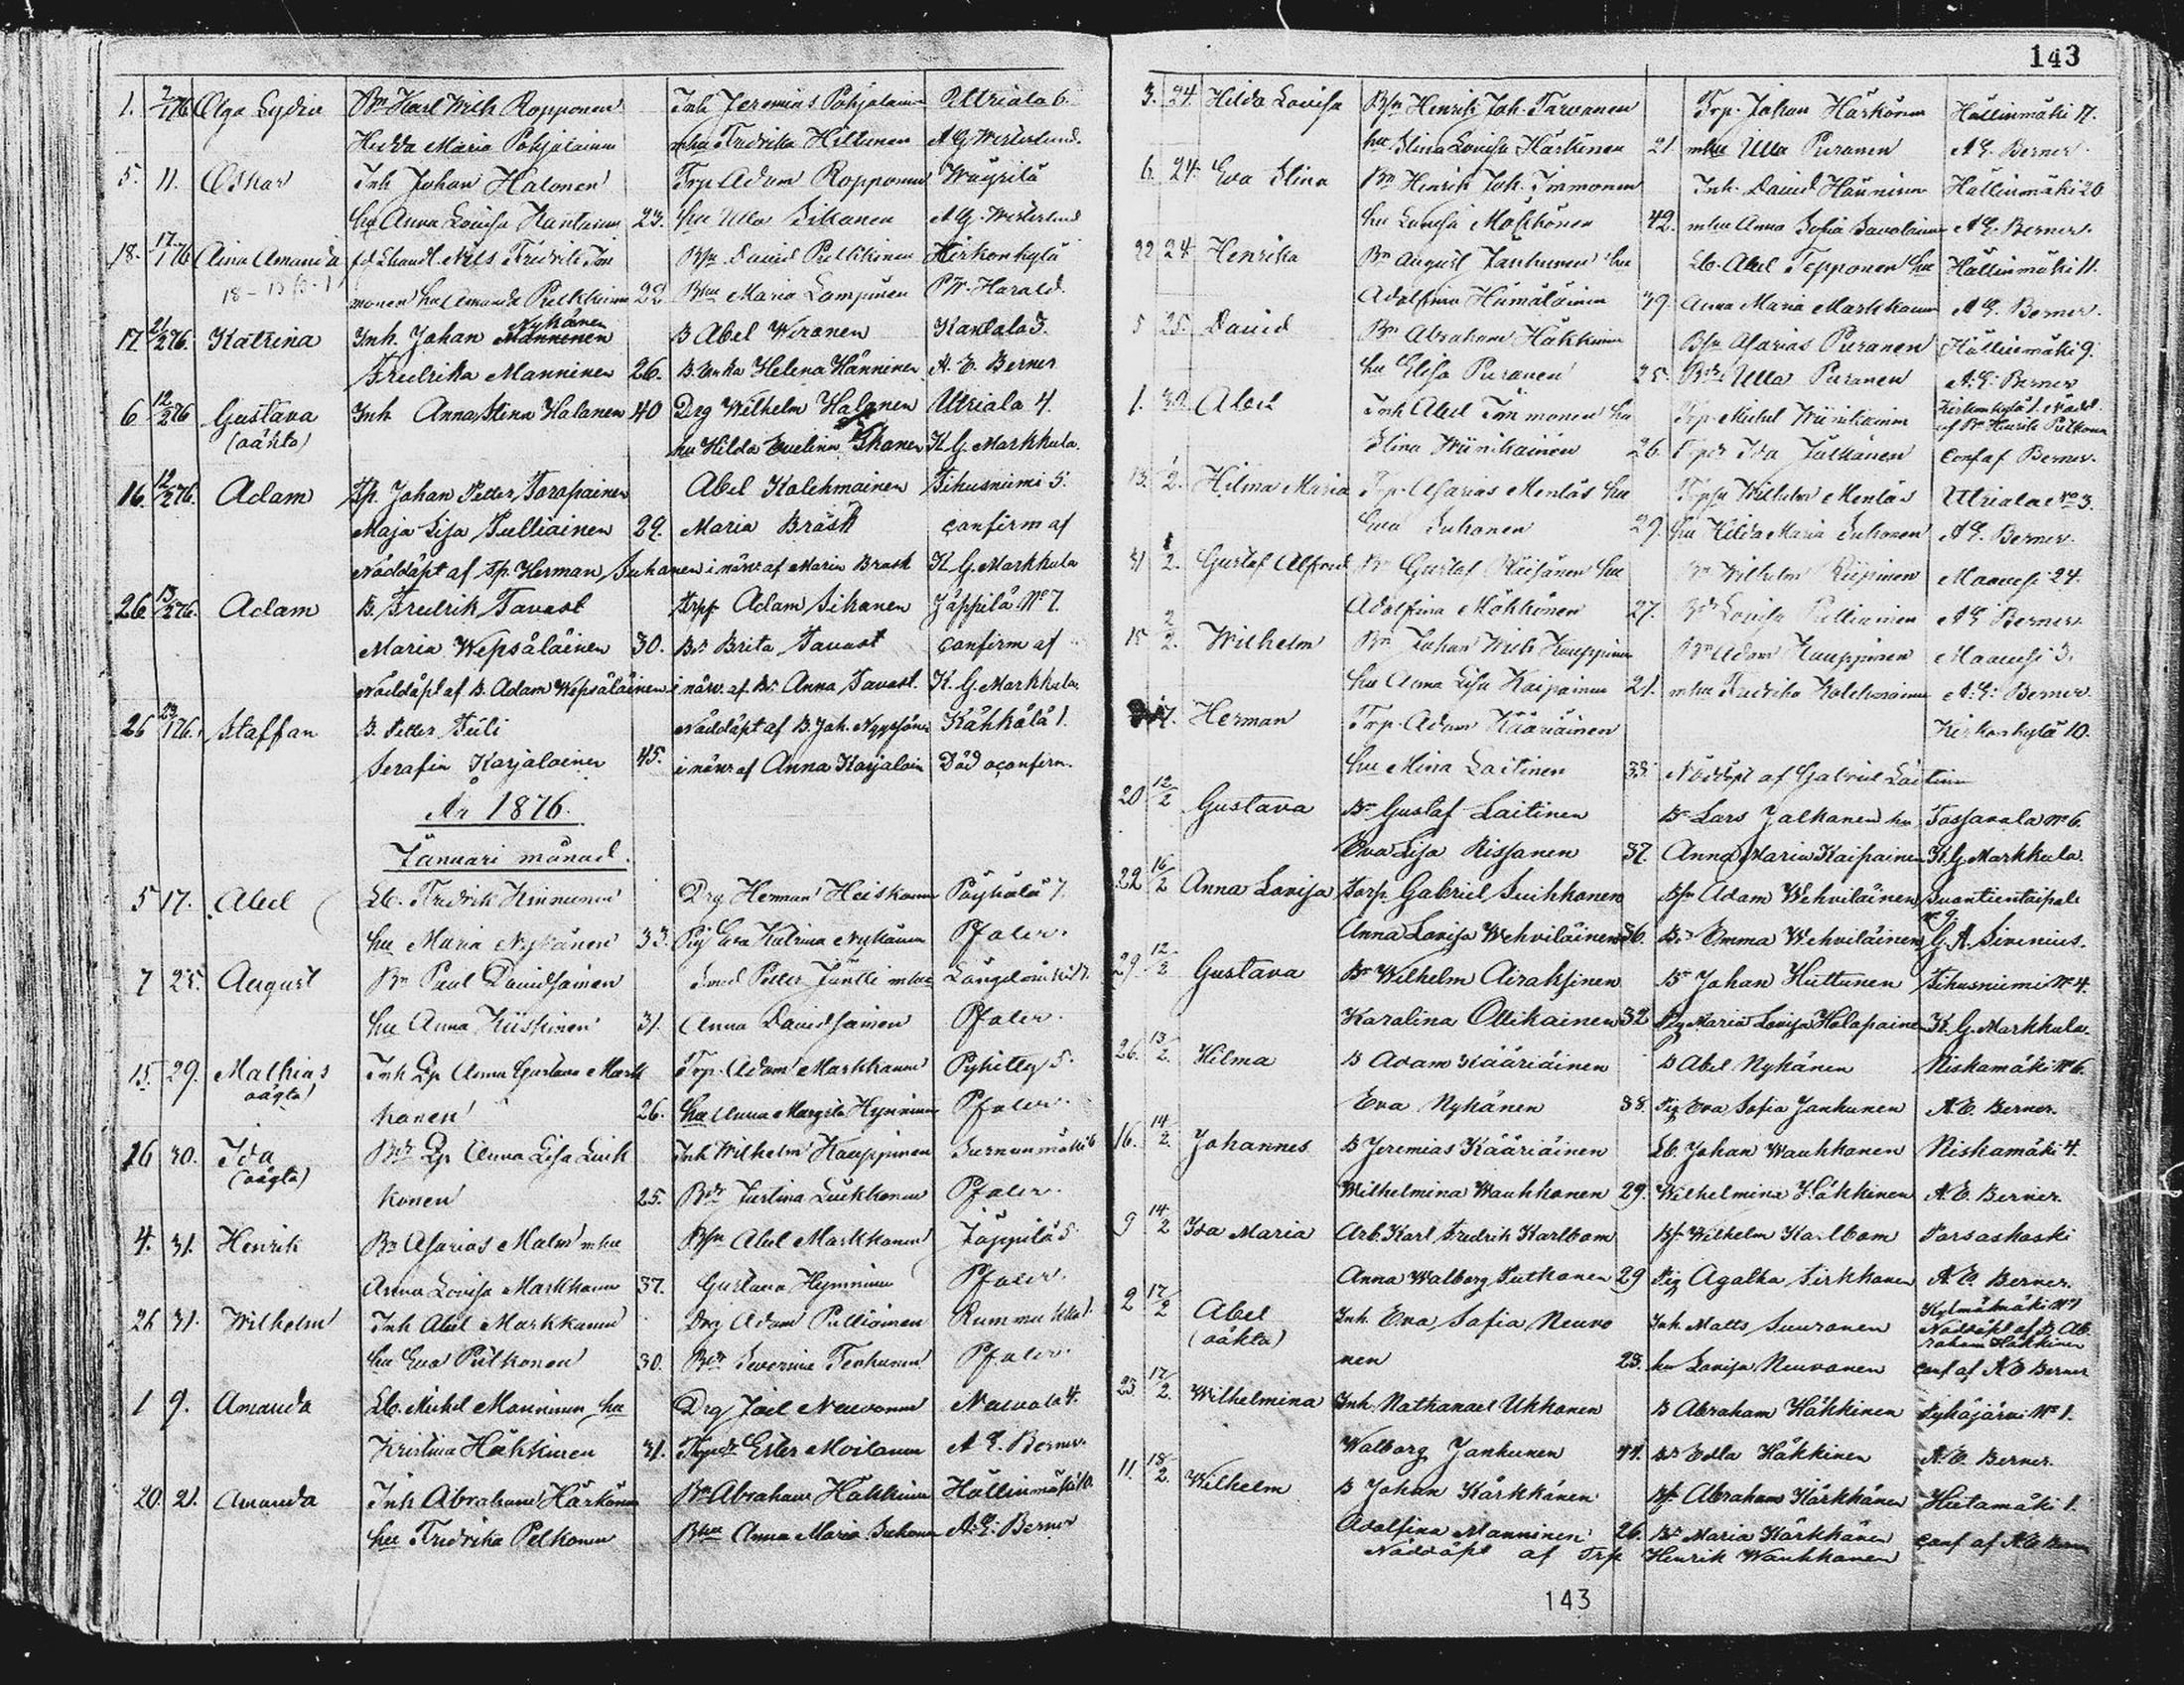 1. 2/1 76 Olga Lydia Bn Karl Wilh Ropponen Inh Jeremias Pohjalain Utriala 6.
Hedda Maria Pohjalainen mhu Fredrika Hiltunen A G Westerlund.
5. 11. Oskar Inh Johan Halonen Trp Adam Ropponen Wäyrilä
hu Anna Lovisa Hantainen 23. hu Ulla Sikanen A G. Westerlund
18. 17/1 76 Aina Amanda Nils Fridrik Im Bsn David Pulkkinen Kirkonkylä
monen hu Amanda Pulkkinen 22 Bhu Maria Lampinen PW. Harald.
17. 21/2 76. Katrina Inh. Johan Nykänen B Abel Wironen Kantala 3.
Fredrika Manninen 26. B. Enka Helena Hänninen A. E. Berner
6 12/2 76 Gustava Inh Anna Stina Halanen 40 Drg Wilhelm Halonen Utriala 4.
(oäkta) hu Hilda Evelina K G. Markkula.
16. 12/2 76. Adam Tp. Johan Petter Torapainen Abel Kolehmainen Tihusniemi 5.
Maja Lisa Pulliainen 29. Maria Bräsk confirm af
Nöddöpt af Tp. Herman Suhonen i närv. af Maria Brask K G. Markkula
26 13/2 76. Adam B. Fredrik Tavast Trpf Adam Sikanen Jäppilä No 7.
Maria Wepsäläinen 30. Bdr Brita Tavast confirm af
Nöddöpt af B. Adam Wepsäläinen i närv. af Bdr Anna Tavast. K. G. Markkula.
26 23/1 76. Staffan B. Petter Nöddöpt af B. Joh. Kähkälä 1.
Serafia Karjalainen 45. i närv af Anna Karjalain Död oconfirm.
År 1876.
Januari månad.
5 17. Abel Lb. Fredrik Kinnunen Drg Herman Heiskanen Päykälä 7.
hu Maria Nykänen 33. Pig Eva Katrina Nykänen Pfaler.
7 25. August Bn Paul Davidsainen Petter Jäntti mhu
hu Anna Kiiskinen 31. Anna Davidsainen Pfaler.
15. 29. Mathias Inh Qp Anna Gustava Mark Trp. Adam Markkanen Pyhitty 5.
oägta! kanen 26. hu Anna Margeta Hynninen Pfaler.
16 30. Ida Bdr Qp Anna Lisa Luuk Inh Wilhelm Kauppinen Surnunmäki 6
(oägta) konen 25. Bdr Justina Luukkonen Pfaler.
4. 31. Henrik Bn Asarias Malm mhu Bsn Abel Markkanen Jäppilä 5.
Anna Lovisa Markkanen 37. Gustava Hynninen Pfaler.
26 31. Wilhelm Inh Abel Markkanen Drg Adam Pulliainen Rummukka 1.
hu Eva Pulkonen 30. Bdr Severina Terhunen Pfaler.
1 9. Amanda Lb. Mikel Manninen hu Drg Joel Neuvonen Neuvola 4.
Kristina Häkkinen 31. Ester Moilanen A E. Berner
20. 21. Amanda Inh Abraham Härkönen Bn Abraham Häkkinen Hällinmäki 10.
hu Fredrika Pelkonen Bhu Anna Maria Suhonen A. E. Berner
143
3. 24. Hilda Lovisa Bsn Henrik Joh. Tarvanen Trp. Johan Härkönen Hällinmäki 17.
hu Stina Lovisa Härkönen 21. mhu Ulla Puranen A E. Berner.
6. 24. Eva Stina Bn Henrik Joh. Immonen Inh. David Hänninen Hällinmäki 20
hu Lovisa Moskönen 42. mhu Anna Sofia Savolainen A E. Berner.
22 24 Henrika Bn August Jankunen hu Lb. Abel Tepponen hu Hällinmäki 11.
Adolfina Hämäläinen 39. Anna Maria Markkanen A E. Berner.
5 25. David Bn Abraham Häkkinen Bsn Asarias Puranen Hällinmäki 9.
hu Elisa Puranen 25. Bdr Ulla Puranen A. E. Berner
1. 30. Abel Inh Abel Immonen hu Trp. Mickel Wiinikainen Kirkonkylä 1. Nödd.
af Bn Henrik Pulkonen
Stina Wiinikainen 26. Ida Jalkanen conf af Berner.
13. 1/2. Hilma Maria Trp. Asarias Mentäs hu Wilhelm Mentäs Utriala No 3.
Eva Suhonen 29. hu Hilda Maria Suhonen A E. Berner.
31 1/2. Gustaf Alfred Bn Gustaf Riisänen hu Bn Wilhelm Riipinen Maavesi 24.
Adolfina Mökkönen 27. Bdr Lovisa Pulliainen A E Berner.
15 2/2. Wilhelm Bn Johan Wilh Kauppinen Bn Adam Kauppinen Maavesi 3.
hu Anna Lisa Kaipainen 21. mhu Fredrika Kolehmainen A. E. Berner.
7. Herman Trp. Adam Kääriäinen Kirkonkylä 10.
hu Mina Laitinen 33. Nöddöpt af Gabriel Laitinen
20 12/2 Gustava Bn Gustaf Laitinen Bn Lars Jalkanen hu Tossavala No 6.
Eva Lisa Rissanen 37. Anna Maria Kaipainen K. G Markkula.
22 16/2 Anna Lovisa Torp. Gabriel Suihkonen Bsn Adam Wehviläinen Suontientaipale
No 9.
Anna Lovisa Wehviläinen 36. Bdr Emma Wehviläinen G. A. Sirenius.
29 12/2 Gustava Bn Wilhelm Airaksinen Bn Johan Huttunen Tihusniemi No 4.
Karolina Ollikainen 32 Pig Maria Lovisa Holopainen K. G. Markkula.
26. 13/2. Hilma B Adam Kääriäinen B Abel Nykänen Niskamäki No 6.
Eva Nykänen 38. Pig Eva Sofia Jankunen A. E. Berner.
16. 14/2. Johannes B Jeremias Kääriäinen Lb. Johan Wauhkonen Niskamäki 4.
Wilhelmina Wauhkonen 29. Wilhelmina Häkkinen A. E. Berner.
9 14/2 Ida Maria Arb. Karl Fredrik Karlbom Bf. Wilhelm Karlbom Porsaskoski
Anna Walborg Putkonen 29 Pig Agatha Sirkkanen A. E. Berner.
2 17/2 Abel Inh. Eva Sofia Neuvo Inh. Matts Suuronen Kylmämäki No 7
Nöddöpt af B. Ab.
raham Häkkinen
(oäkta) nen 23. hu Lovisa Neuvonen conf af A E Berner
23 17/2. Wilhelmina Inh. Nathanael Ukkonen B Abraham Häkkinen Pyhäjärvi No 1.
Walborg Jankunen 44. Bdr Edla Häkkinen A. E. Berner.
11. 18/2. Wilhelm B Johan Kärkkänen Bf. Abraham Kärkkänen Hietamäki 1.
Adolfina Manninen 26. Bdr Maria Kärkkänen conf af A E Berner
Nöddöpt af Trp Henrik Wauhkonen
143